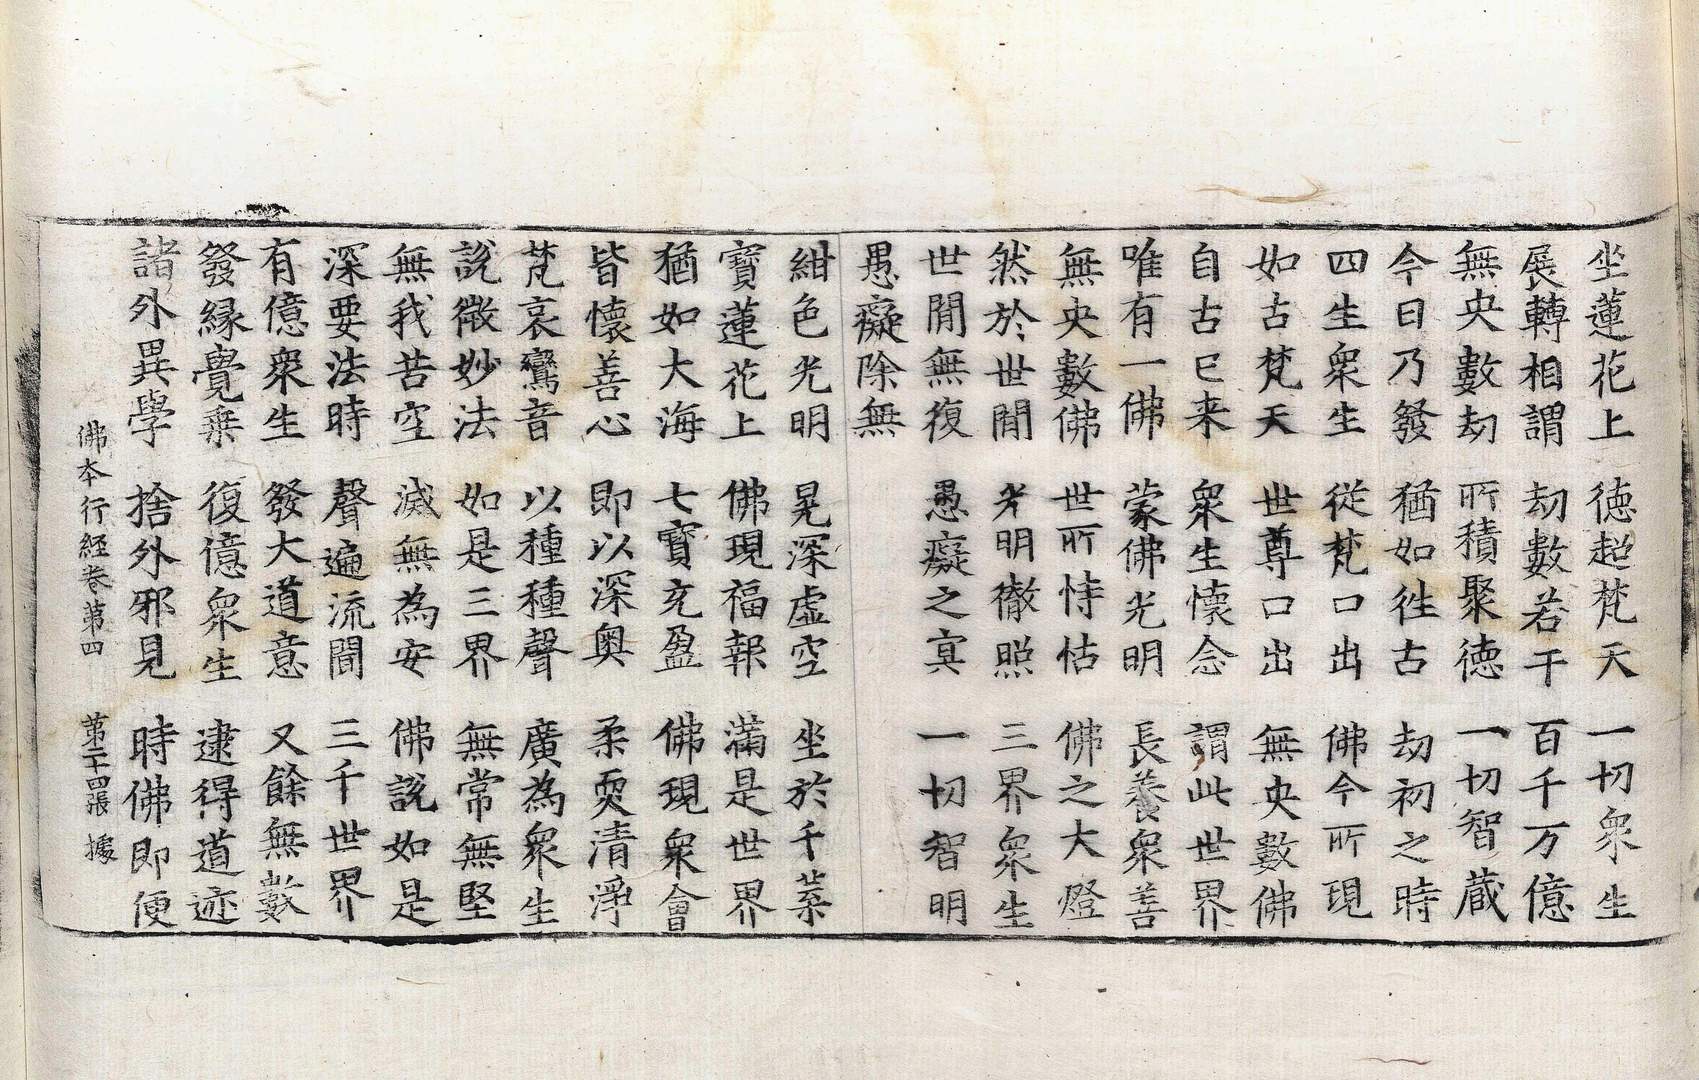 坐蓮花上 德超梵天 一切衆生
展轉相謂 劫數若干 百千万億
無央數劫 所積聚德 一切智藏
今日乃發 猶如往古 劫初之時
四生衆生 從梵口出 佛今所現
如古梵天 世尊口出 無央數佛
自古已来 衆生懷念 謂此世界
唯有一佛 蒙佛光明 長養衆善
無央數佛 世所恃怙 佛之大燈
然於世間 光明徹照 三界衆生
世間無復 愚癡之冥 一切智明
愚癡除無
紺色光明 晃深虛空 坐於千葉
寶蓮花上 佛現福報 滿是世界
猶如大海 七寶充盈 佛現衆會
皆懷善心 即以深奥 柔耎清淨
梵哀鸞音 以種種聲 廣為衆生
說微妙法 如是三界 無常無堅
無我苦空 滅無為安 佛說如是
深要法時 聲遍流聞 三千世界
有億衆生 發大道意 又餘無數
發縁覺乗 復億衆生 逮得道迹
諸外異學 捨外邪見 時佛即便
佛本行經卷第四 第二十四張 據